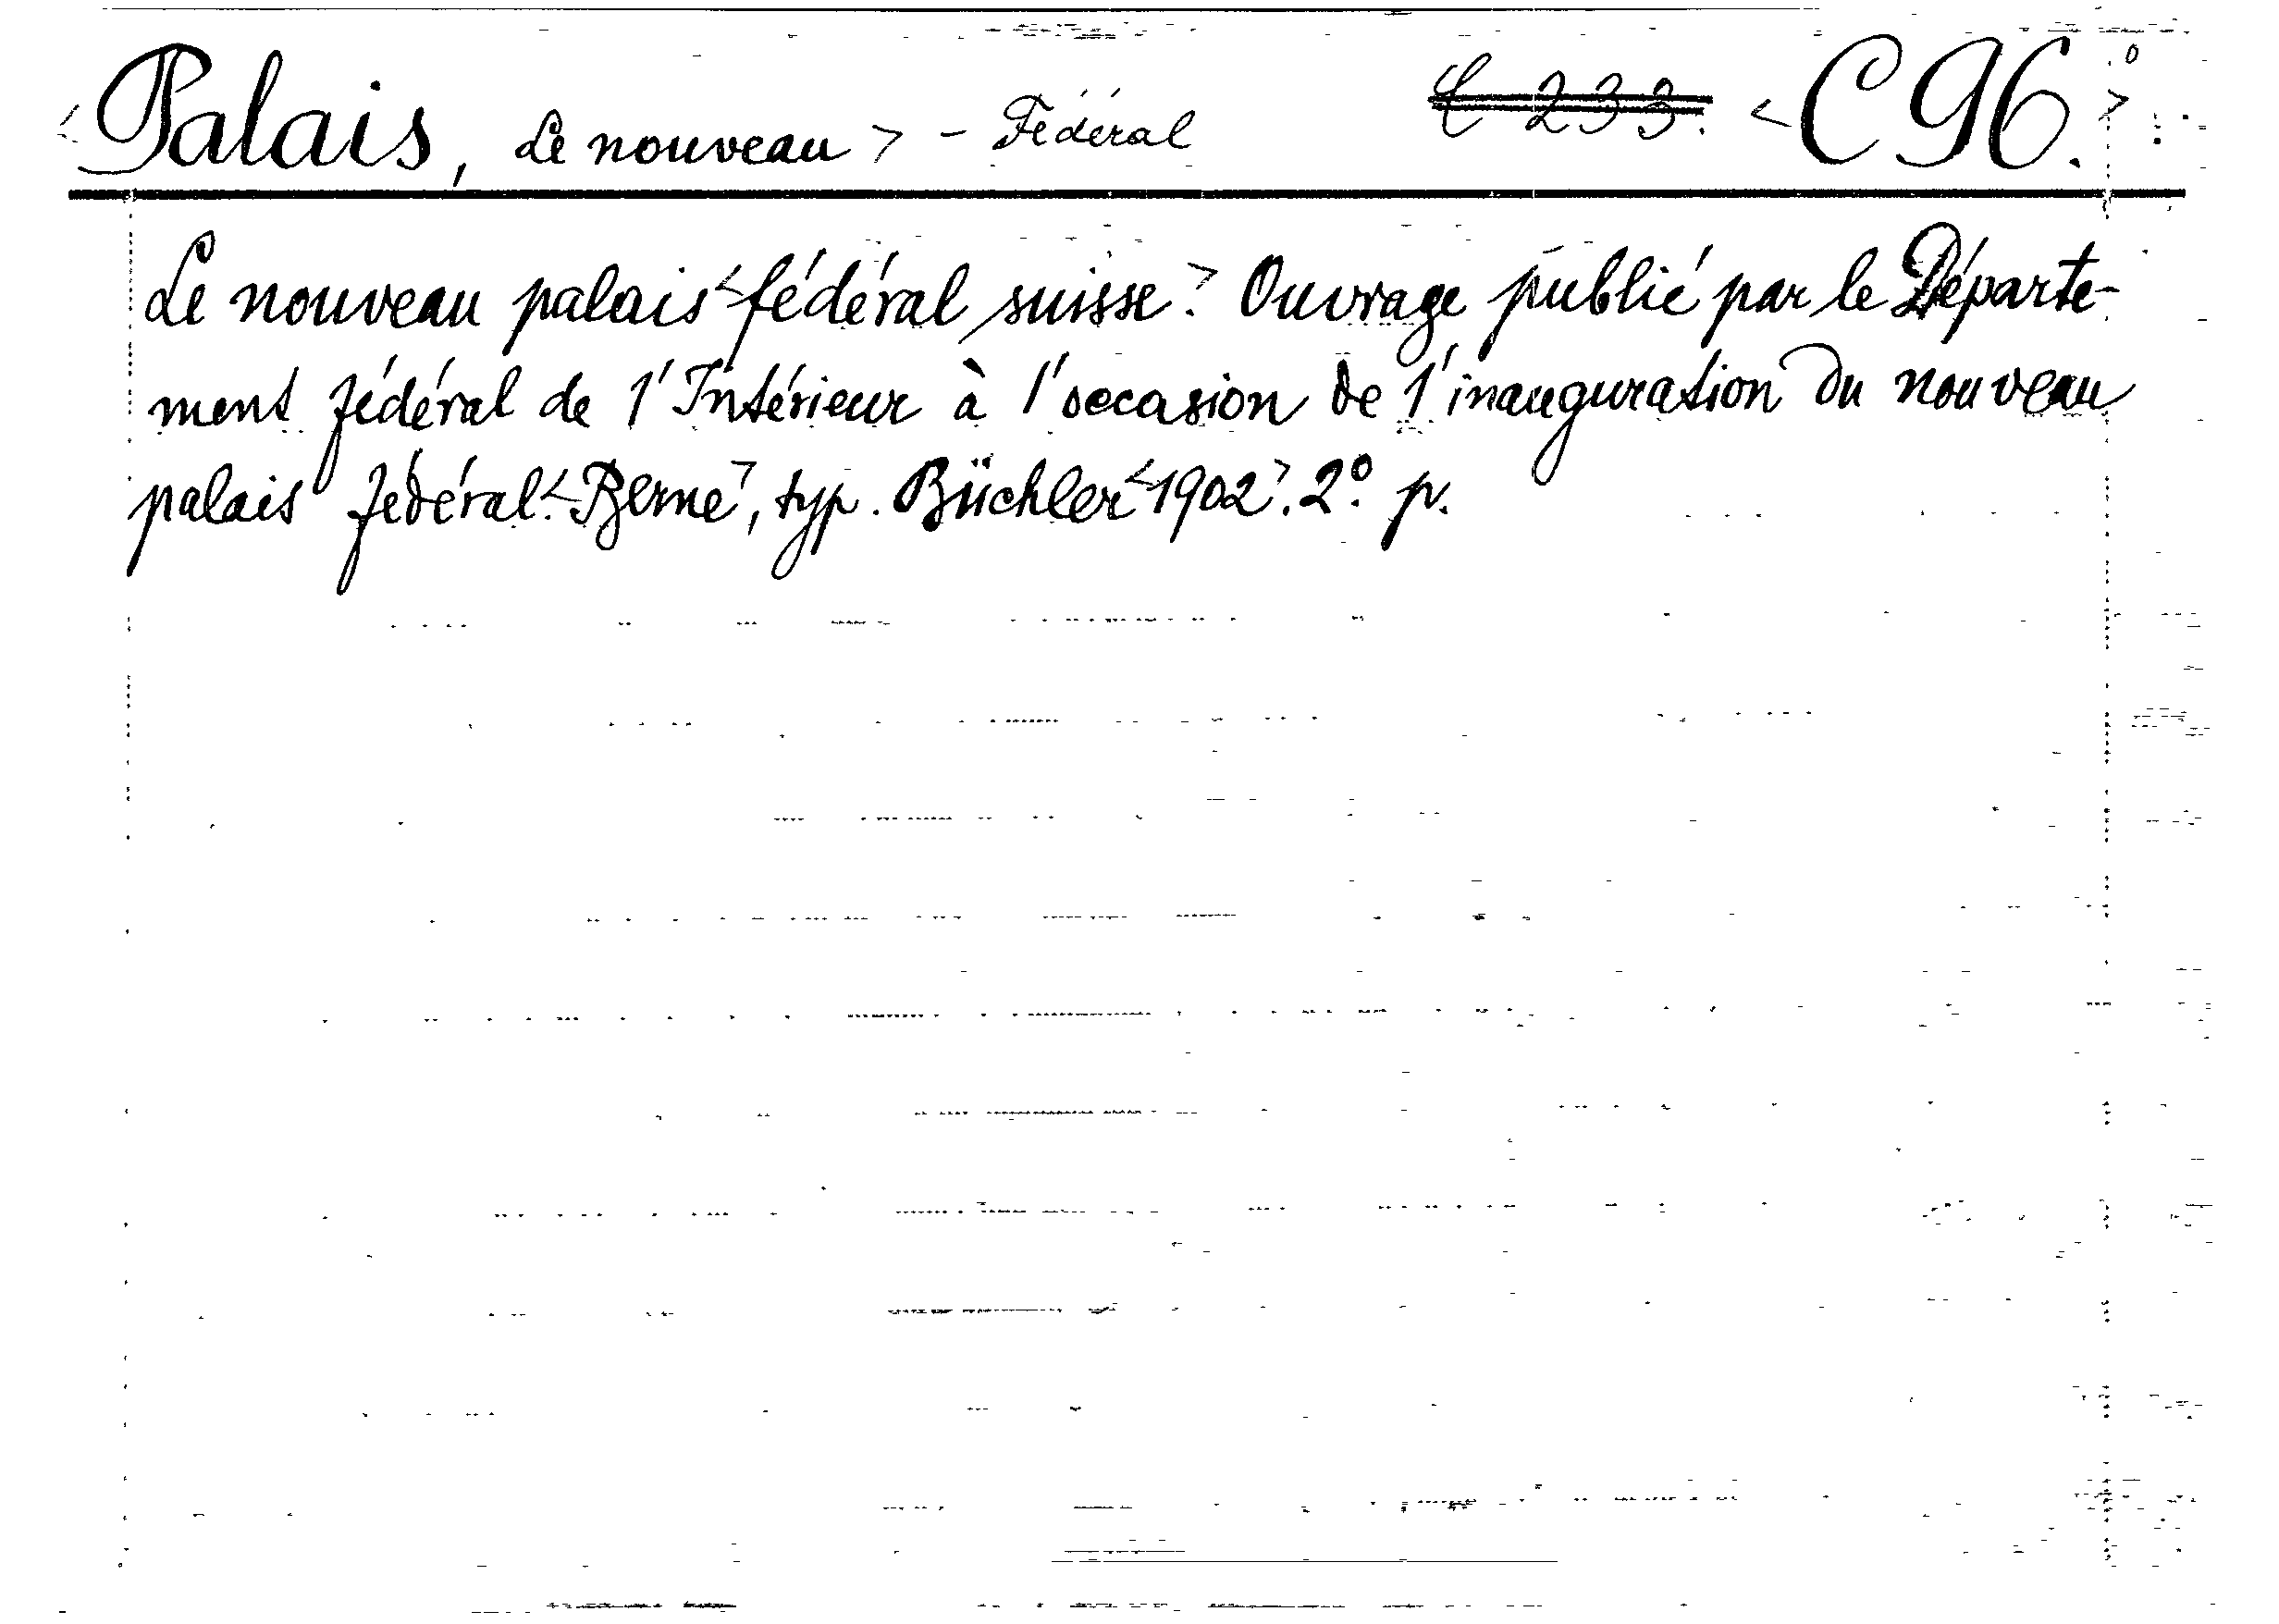 <Palais, Le nouveau> - Fédéral C 233. <C 96.>
Le nouveau palais <fédéral suisse>. Ouvrage publié par le Départe-
ment fédéral de l'Intérieur à l'occasion de l'inauguration du nouveau
palais fédéral. <Berne>, typ. Büchler <1902>. 2º. p.